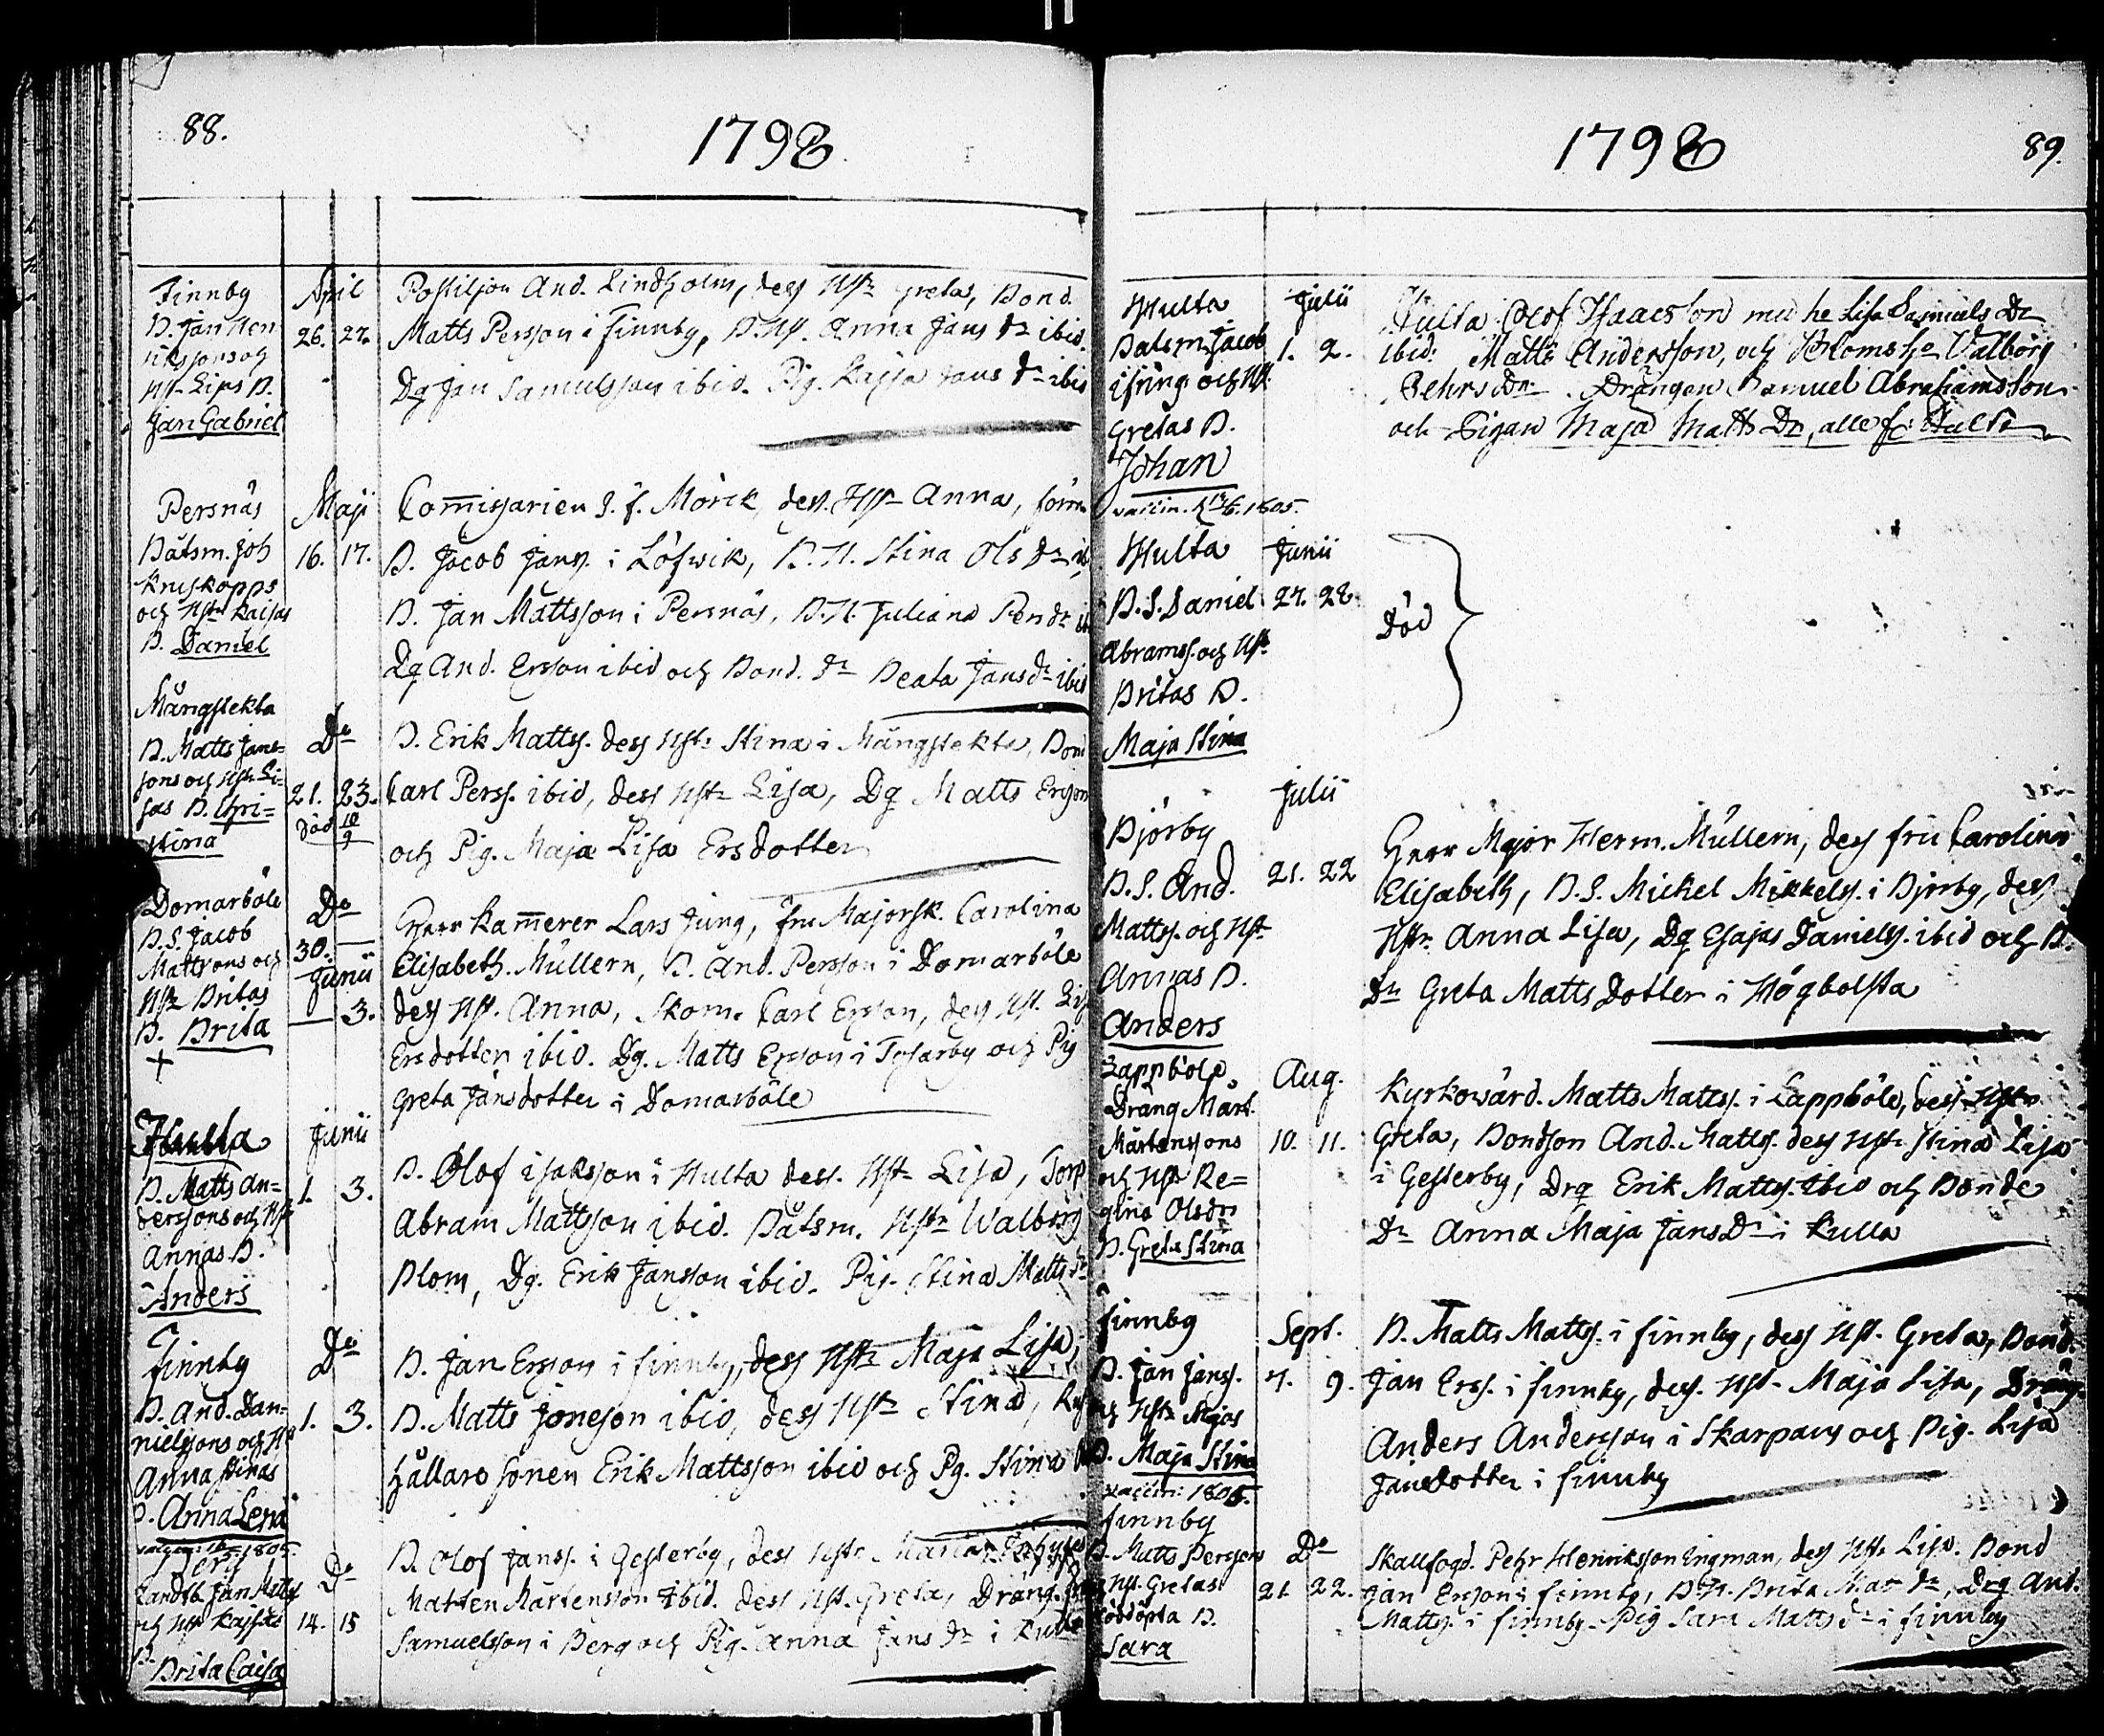 88.
1798
Finnby
B. Jan Hen
rikssons och
Hst. Lisas B.
Jan Gabriel
April
26. 27.
Postiljon And. Lindholm, dess Hstr Greta, Bond.
Matts Persson i Finnby, B. Hst. Anna Jans dr ibid.
Dg Jan Samuelsson ibid. Pig. Kajsa Jans dr ibid
Persnäs
Båtsm. Joh
Kruskopps
och Hstr Kaisas
B. Daniel
Maji
16. 17.
Comissarien J. f. Mörck, dess Hst Anna,
B. Jacob Janss. i Löfwik, B. H. Stina Ols dr
B. Jan Mattsson i Persnäs, B. H. Juliana Pers dr
Dg And. Ersson ibid och Bond. dr Beata Jans dr ibid
Mångstekta
B. Matts Jans-
sons och Hstr Li-
sas B. Chri-
stina
Do
21. 23.
död 18
9
B. Erik Matts. dess Hstr Stina i Mångstekta, Bond
Carl Perss. ibid, dess Hstr Lisa, Dg Matts Ersson
och Pig. Maja Lisa Ersdotter
Domarböle
B. S. Jacob
Mattsons och
Hstr Britas
B. Brita
+
Do
30. —
Junii
— 3.
Herr Kamerer Lars Jung, fru Majorsk. Carolina
Elisabeth Müllern, B. And. Persson i Domarböle
dess Hst. Anna, Skom. Carl Ersson, dess Hst. Lis
Ersdotter ibid. Dg. Matts Ersson i Tosarby och Pig
Greta Jansdotter i Domarböle
Hulta
B. Matts An-
derssons och Hstr
Annas B.
Anders
Junii
1. 3.
B. Olof Isaksson i Hulta dess Hst Lisa, Torp
Abram Mattsson ibid. Båtsm. Hstr Walborg
Blom, Dg. Erik Jansson ibid. Pig. Stina Matts dr
Finnby
B. And. Dan-
nielssons och Hst
Anna Stinas
B. Anna Lena
1805.
Do
1. 3.
B. Jan Ersson i Finnby, dess Hstr Maja Lisa,
B. Matts Jonsson ibid, dess Hstr Stina,
hållare sonen Erik Mattsson ibid och Pg. Stina
Berg
Landtb. Jan Matts
och Hst Kajsas
B.
Brita Caisa
Do
14. 15
B. Olof Janss. i Gesterby, dess Hstr Maria,
Mårten Mårtensson ibid. dess Hst. Greta, Dräng.
Samuelsson i Berg och Pig. Anna Jans dr i Kulla
1798
89.
Hulta
Båtsm. Jacob
Isrings och Hst
Gretas B.
Johan
vaccin. 1805.
Julii
1. 2.
Hulta. Olof Isaacsson med he Lisa Samuels Dr
ibid: Matts Andersson, och Bloms h. Valborg
Pehrs Dr. Drängen Samuel Abrahamsson
och Pigan Maja Matts Dr, alle fr: Hulta
Hulta
B. S. Daniel
Abramss. och Hstr
Britas B.
Maja Stina
Junii
27. 28.
Död
Björby
B. S. And.
Matts. och Hst
Annas B.
Anders
Julii
21. 22
Herr Major Herm. Müllern, dess fru Carolina
Elisabeth, B. S. Mickel Mickels. i Björby, dess
Hstr Anna Lisa, Dg Esajas Daniels. ibid och B.
Dr Greta Matts Dotter i Högbolsta
Lappböle
Dräng Mårt.
Mårtenssons
och Hstr Re=
gina Olsdrs
B. Greta Stina
Aug.
10. 11.
Kyrkovärd. Matts Matts. i Lappböle, dess Hstr
Greta, Bondson And. Matts. dess Hstr Stina Lisa
i Gesterby, Drg Erik Matts. ibid och Bonde
Dr Anna Maja Jans Dr i Kulla
Finnby
B. Jan Janss.
och Hstr Majas
B. Maja Stina
vaccin: 1805.
Sept.
7. 9.
B. Matts Matts. i Finnby, dess Hst. Greta, Bond.
Jan Erss. i Finnby, dess Hst. Maja Lisa, Dräng
Anders Andersson i Skarpans och Pig. Lisa
Jansdotter i Finnby
Finnby
B. Matts Perssons
Hst. Gretas
B.
Sara
Do
21. 22.
Skallfogd. Pehr Henriksson Engman, dess Hstr Lisa. Bond
Jan Ersson i Finnby, B. H. Brita dr, Drg And.
Matts. i Finnby. Pig Sara Matts dr i Finnby